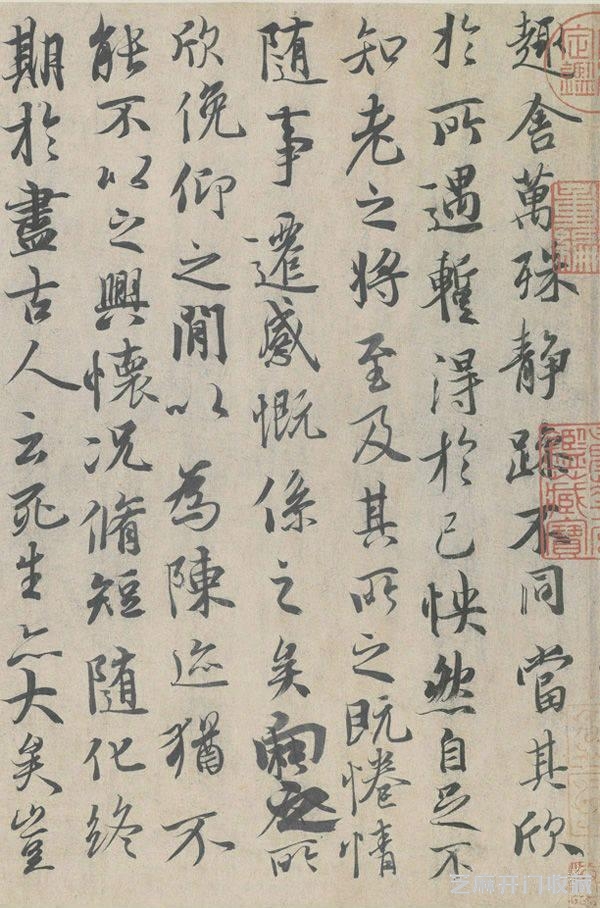 趣舍萬殊静躁不同當其欣
於所遇暫得於己怏然自足不
知老之將至及其所之既惓情
随事遷感慨係之矣向之所
欣俛仰之閒以為陳迹猶不
能不以之興懷況脩短随化終
期於盡古人云死生亦大矣豈
芝麻开门收藏